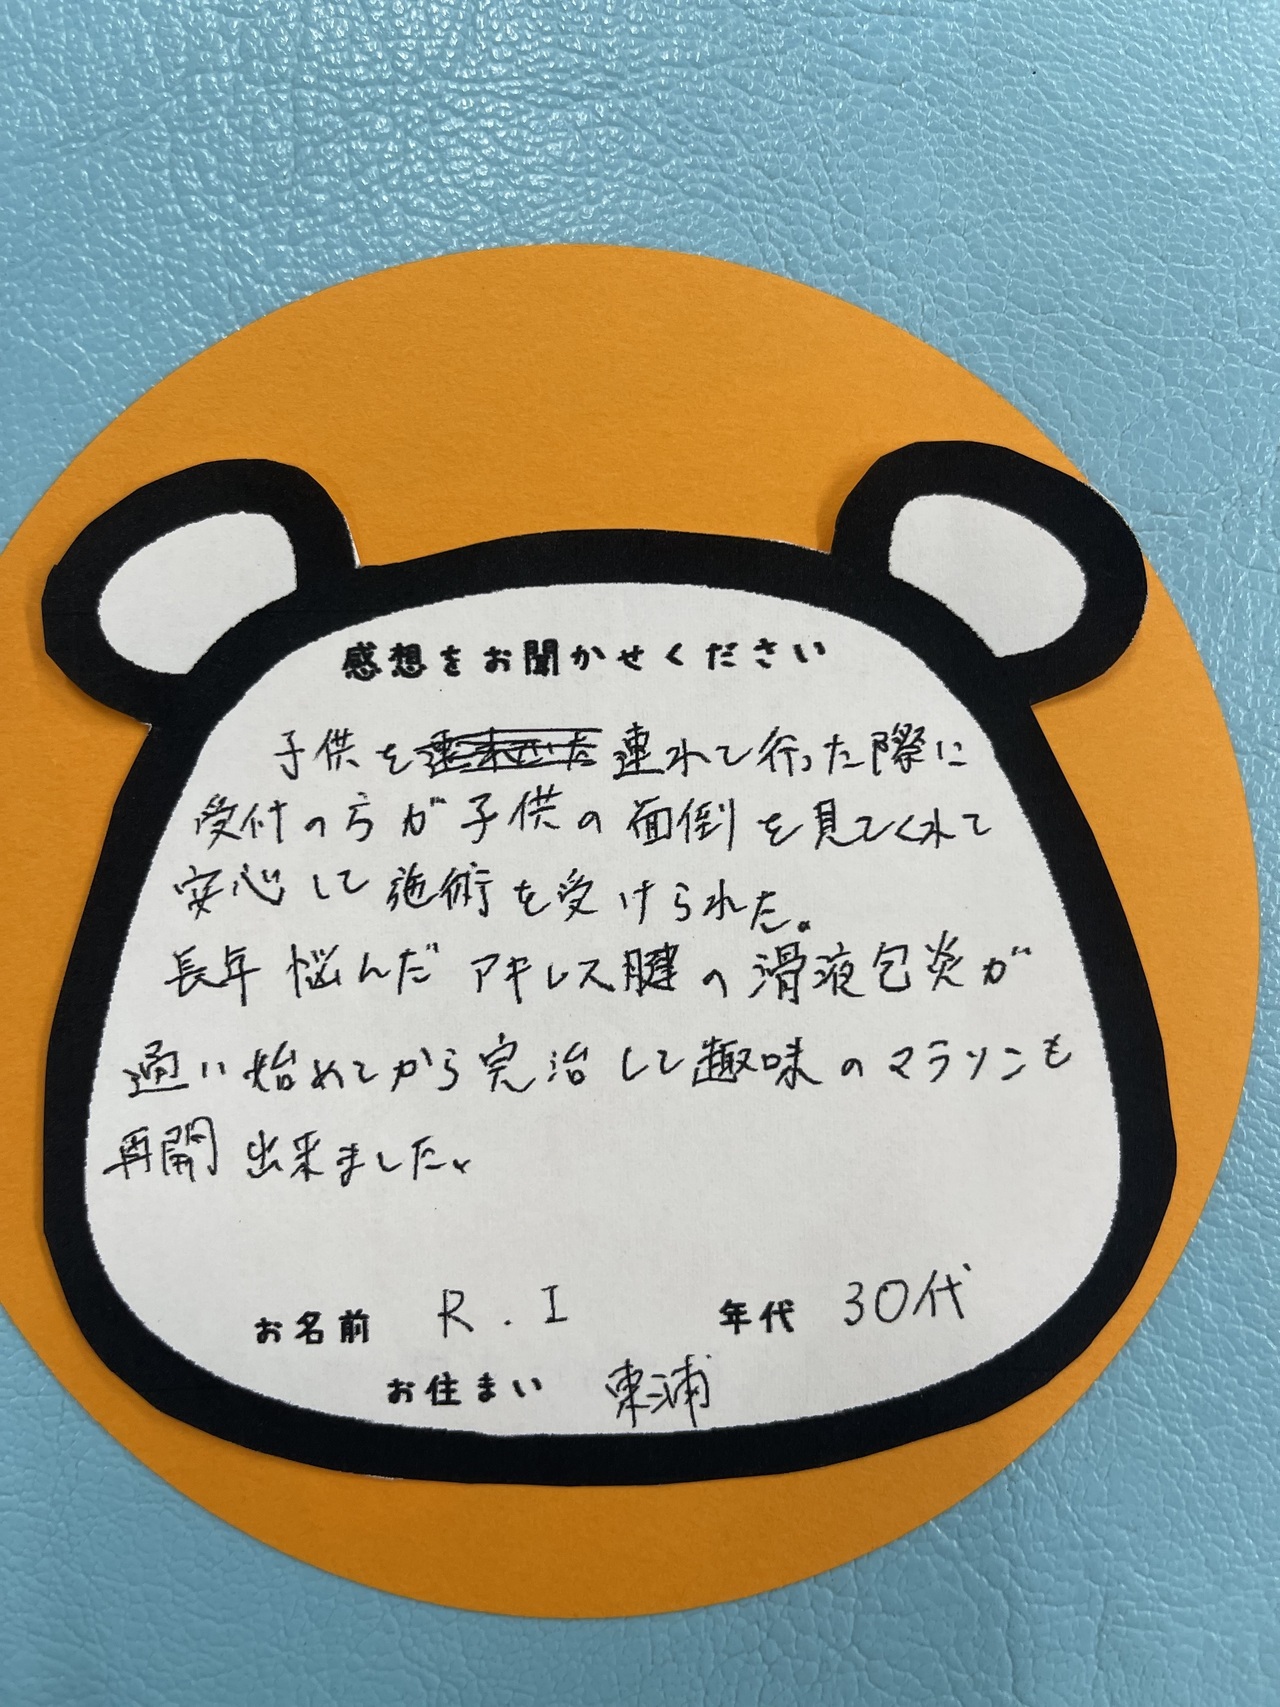 感想をお聞かせください
子供を連れて行った際に
受付の方が子供の面倒を見てくれて
安心して施術を受けられた。
長年悩んだアキレス腱の滑液包炎が
通い始めてから完治して趣味のマラソンも
再開出来ました。
お名前 R.I 年代 30代
お住まい 東浦